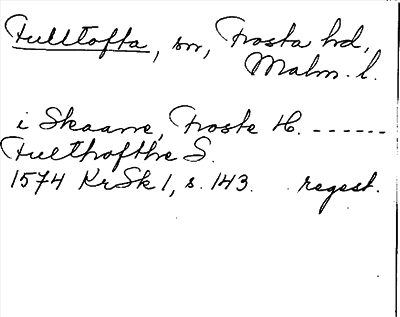 Fulltofta, sn, Frosta hd,
Malm. l.
i Skaane, Froste H. ------
Fulthofthe S.
1574 KrSk 1, s. 143. regest.